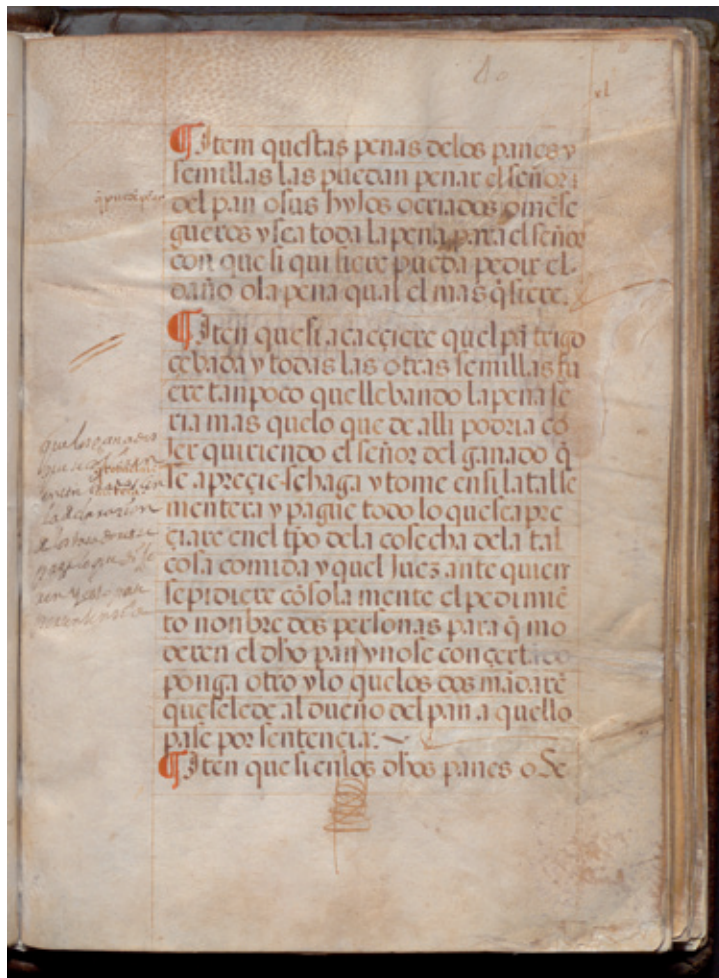 40
xl
Item questas penas delos panes y
semillas las puedan penar el señor
del pan osus hyios ocriados omēse
gueros y sea toda la pena para el señor
con que si quisiere pueda pedir el
daño ola pena qual el mas q̄siere.
Iten quesi acaeçiere quel pā trigo
çebada y todas las otras semillas fu
ere tanpoco quellebando lapena se
ria mas quelo que de alli podria co
ler quiriendo el señor del ganado q̄
se apreçie sehaga y tome ensi la tal se
mentera y pague todo lo quesea pre
çiare enel tp̄o dela cosecha dela tal
cosa comida y quel Juez ante quien
sepidiere cōsola mente el pedimiē
to nonbre dos personas para q̄ mo
deren el dho pan ynose conçertādo
ponga otro ylo quelos dos mādarē
queselede al dueño del pan a quello
pase por sentençia:~
Iten que si enlos dhos panes o Se